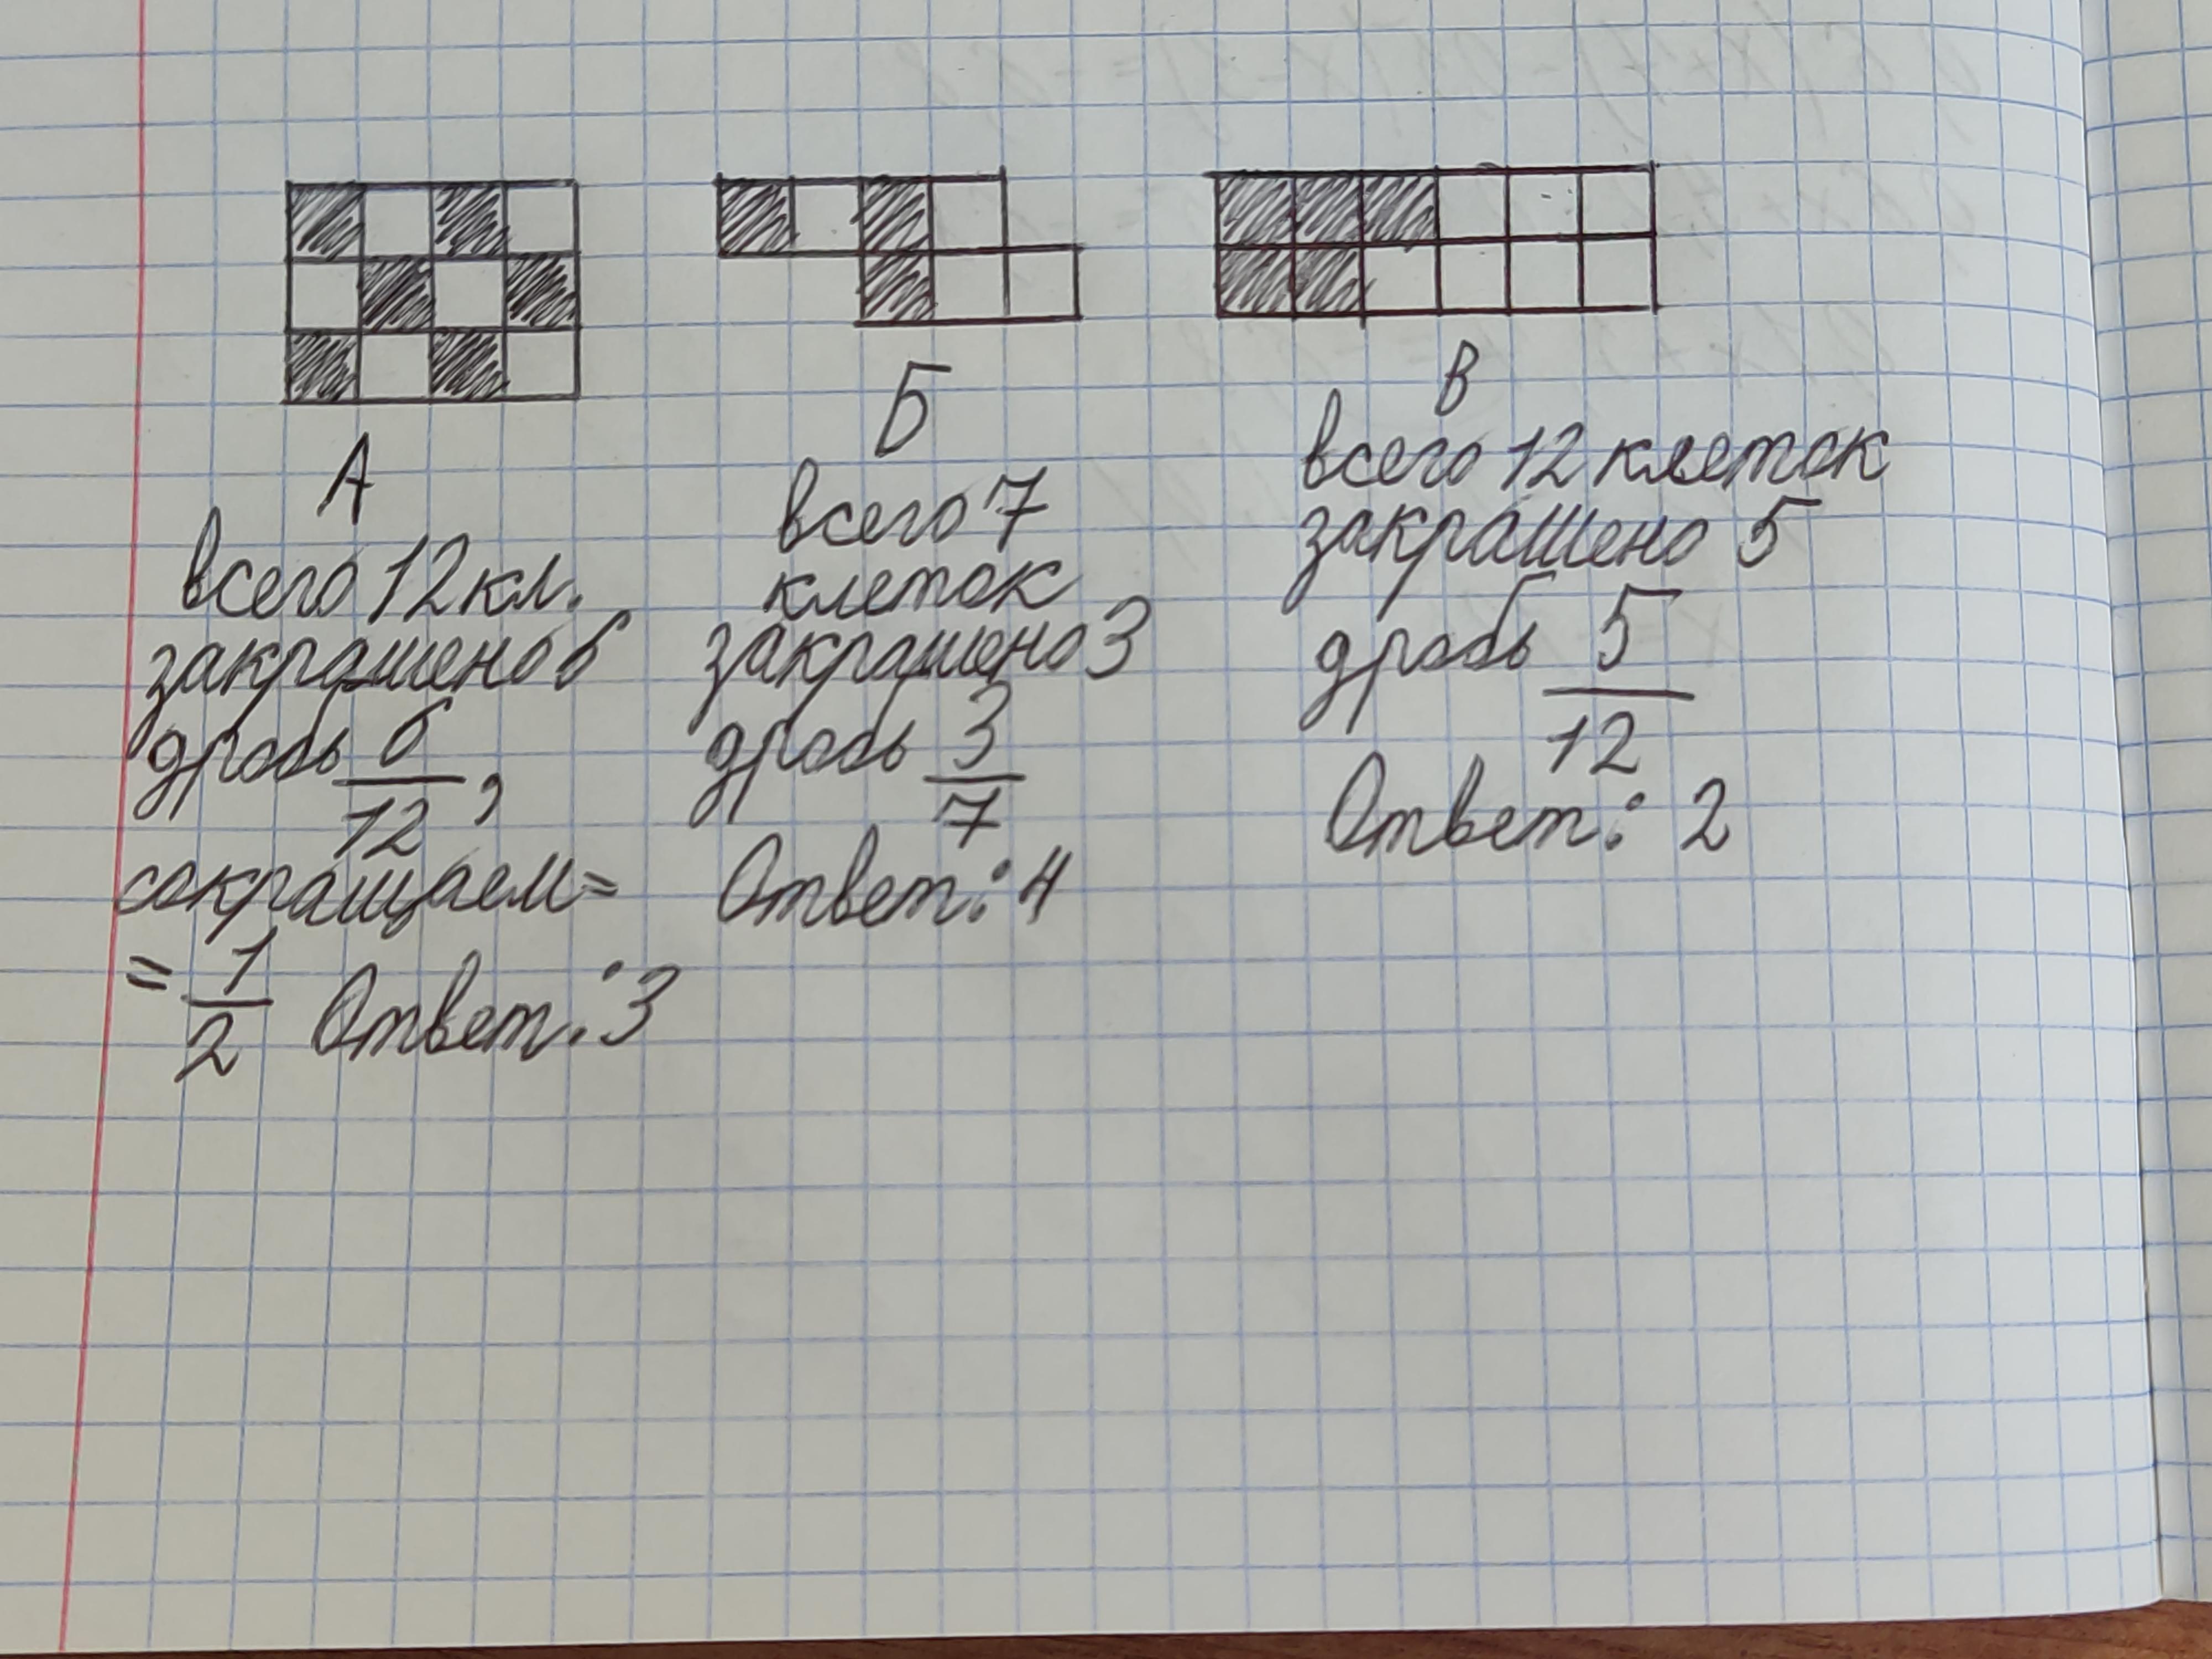 А
всего 12 кл.
закрашено 6
дробь 6/12,
сокращаем =
= 1/2 Ответ: 3
Б
всего 7
клеток
закрашено 3
дробь 3/7
Ответ: 4
В
всего 12 клеток
закрашено 5
дробь 5/12
Ответ: 2